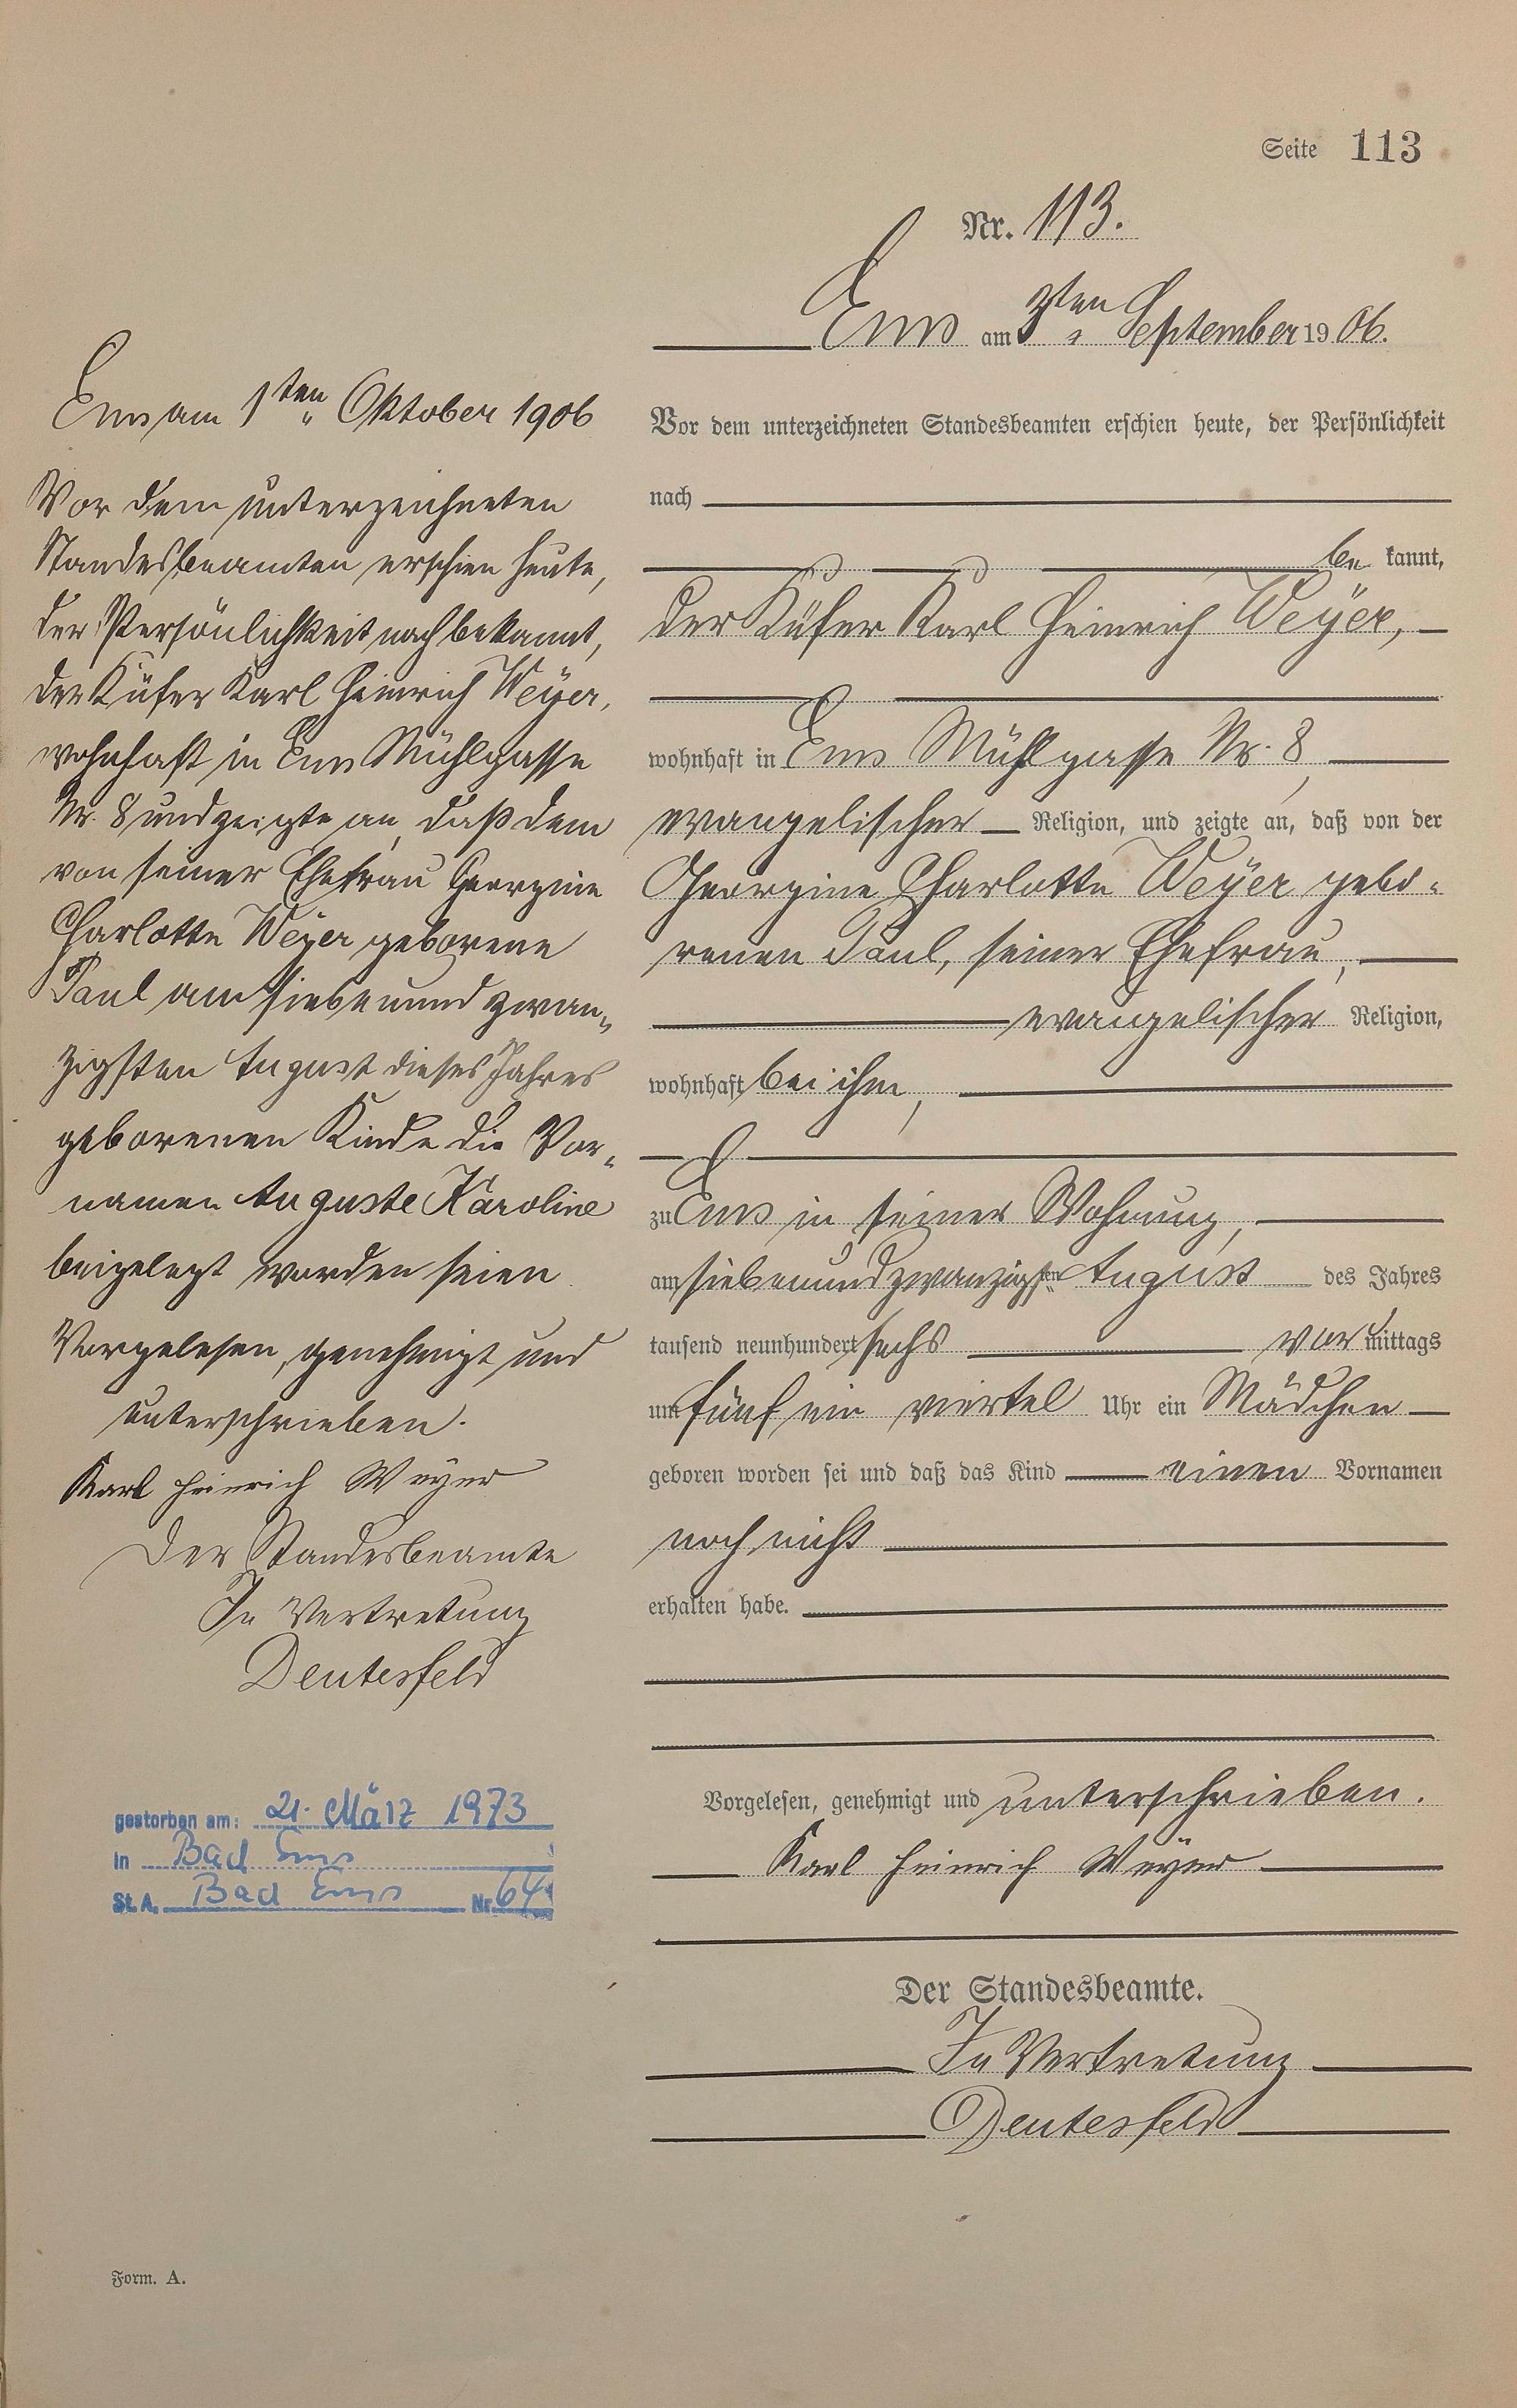 Seite 113
Nr. 113.
Ems am 3ten September 1906.
Vor dem unterzeichneten Standesbeamten erschien heute, der Persönlichkeit
nach
be kannt,
der Küfer Karl Heinrich Weyer,
wohnhaft in Ems Mühlgasse Nr. 8,
evangelischer Religion, und zeigte an, daß von der
Georgine Charlotte Weyer gebo-
renen Paul, seiner Ehefrau,
evangelischer Religion,
wohnhaft bei ihm,
zu Ems in seiner Wohnung,
am siebenundzwanzigsten August des Jahres
tausend neunhundert sechs vor mittags
um fünf ein viertel Uhr ein Mädchen
geboren worden sei und daß das Kind einen Vornamen
noch nicht
erhalten habe.
Vorgelesen, genehmigt und unterschrieben.
Karl Heinrich Weyer
Der Standesbeamte.
In Vertretung
Deutesfeld
Ems am 1ten Oktober 1906
Vor dem unterzeichneten
Standesbeamten erschien heute,
der Persönlichkeit nach bekannt,
der Küfer Karl Heinrich Weyer,
wohnhaft in Ems Mühlgasse
Nr. 8 und zeigte an, daß dem
von seiner Ehefrau Georgine
Charlotte Weyer geborene
Paul am siebenund zwan-
zigsten August dieses Jahres
geborenen Kinde die Vor-
namen Auguste Karoline
beigelegt worden seien
Vorgelesen, genehmigt und
unterschrieben.
Karl Heinrich Weyer
Der Standesbeamte
In Vertretung
Deutesfeld
gestorben am: 21. März 1973
in Bad Ems
St. A. Bad Ems Nr. 64
Form. A.